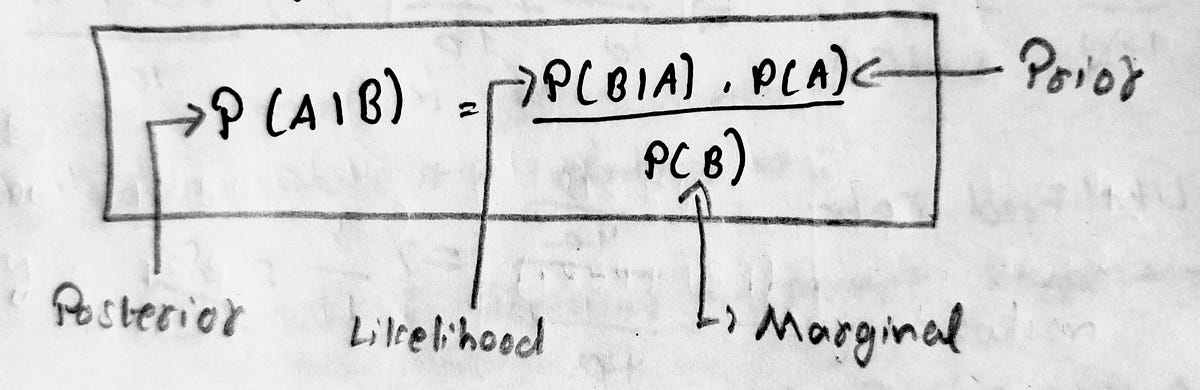 P(A|B) = P(B|A) . P(A)
P(B)
Prior
Posterior
Likelihood
Marginal